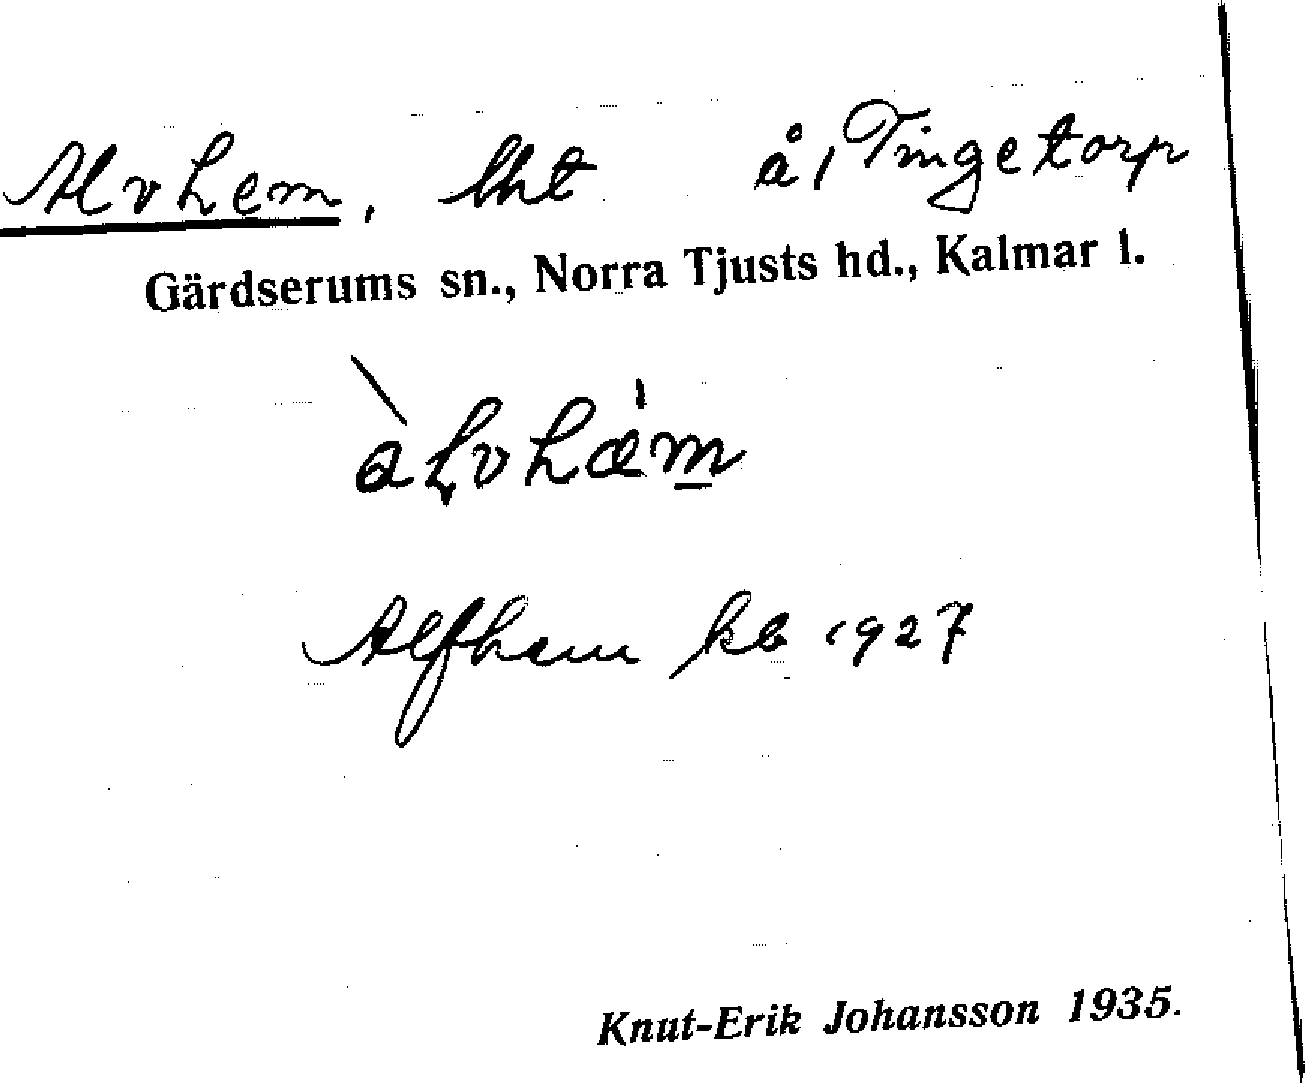 Alvhem, lht å, Tingetorp
Gärdserums sn., Norra Tjusts hd., Kalmar l.
àlvhæ̀m
Alfhem kb 1927
Knut-Erik Johansson 1935.